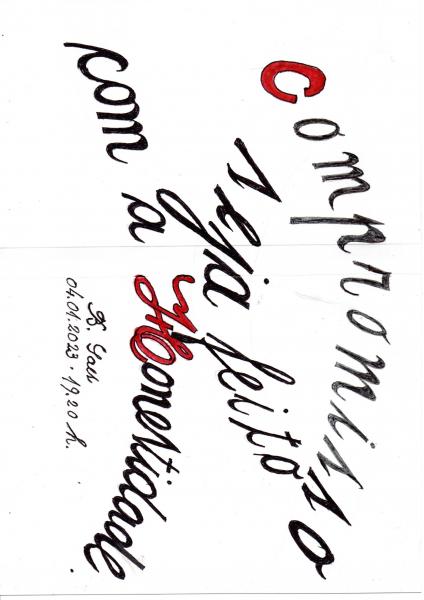 Compromisso
seja feito
com a Honestidade.
04.01.2023 · 19.20 h.